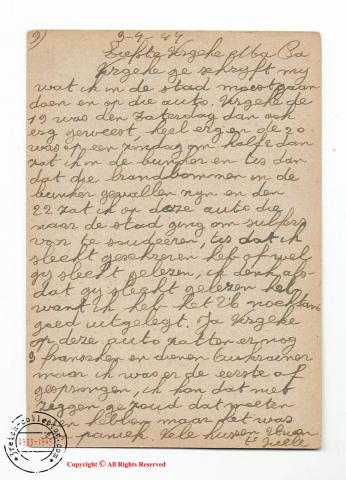 9)
3-9-44
Liefste Urgeke Alba Pa
Urgeke ge schryft my
wat ik in de stad moest gaan
doen en op die auto. Urgeke de
19 was den Zaterdag dan ook
erg geweest, heel erg en de 20
was op een zondag om halfe dan
zat ik in de bunker en tis dan
dat die brandbommen in de
bunker gevallen zyn en den
22 zat ik op deze auto die
naar de stad ging om
voor te soudeeren, tis dat ik
slecht geschreven heb of wel
gy slecht gelezen, ik denk als-
dat gy slecht gelezen heb,
want ik heb het U
goed uitgelegt. Ja Urgeke
op deze auto zatten er nog
3 franschen en eenen
maar ik was er de eerste af
gesprongen, ik kan dat niet
zeggen ge zoud dat moeten
hebben maar het was
paniek. Vele kussen
Third-collection.com
1933-1945
Copyright © All Rights Reserved